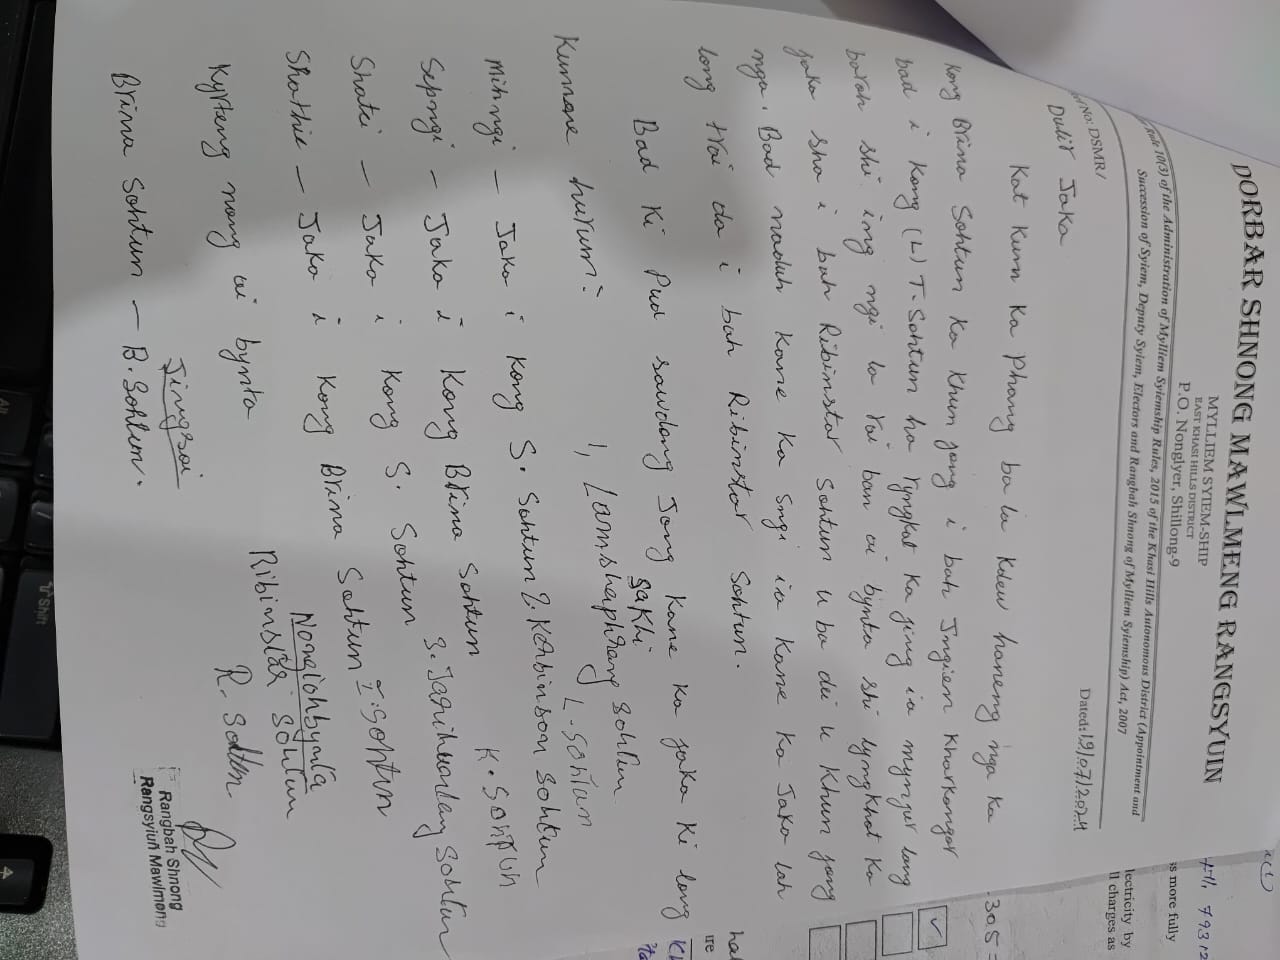 DORBAR SHNONG MAWLMENG RANGSYUIN
MYLLIEM SYIEM-SHIP
EAST KHASI HILLS DISTRICT
P.O. Nonglyer, Shillong-9
Rule 10(3) of the Administration of Mylliem Syiemship Rules, 2015 of the Khasi Hills Autonomous District (Appointment and
Succession of Syiem, Deputy Syiem, Electors and Rangbah Shnong of Mylliem Syiemship) Act, 2007
No. DSMR/
Dated: 19/07/2024
Dulir Jaka
Kat kum ka phang ba la kdew haneng nga ka
Kong Brina Sohtun ka khun jong i bah Ingien Kharkongor
bad i kong (L) T. Sohtun ha ryngkat ka jing ia mynjur lang
baroh shi ing ngi la rai ban ai bynta shi lyngkhot ka
jaka sha i bah Ribinstar Sohtun u ba dei u khun jong
nga. Bad naduh kane ka sngi ia kane ka Jaka lah
long trai da i bah Ribinstar Sohtun.
Bad ki pud sawdong jong kane ka jaka ki long
Kumne harum:
Mihngi - Jaka i kong S. Sohtun
Sepngi - Jaka i Kong Brina Sohtun
Shatei - Jaka i Kong S. Sohtun
Shathie - Jaka i Kong Brina Sohtun
Sakhi
1, Lamshaphrang Sohtun
L. Sohtun
2. Kerbinson Sohtun
K. Sohtun
3. Jaquihunlang Sohtun
I. Sohtun
Kyrteng nong ai bynta
Jingsoi
Brina Sohtun - B. Sohtun.
Nongiohbynta
Ribinstar Sohtun
R. Sohtun
Rangbah Shnong
Rangsyiuñ Mawlmeng
305
lectricity by
ll charges as
s more fully
793 12
Shift
Alt